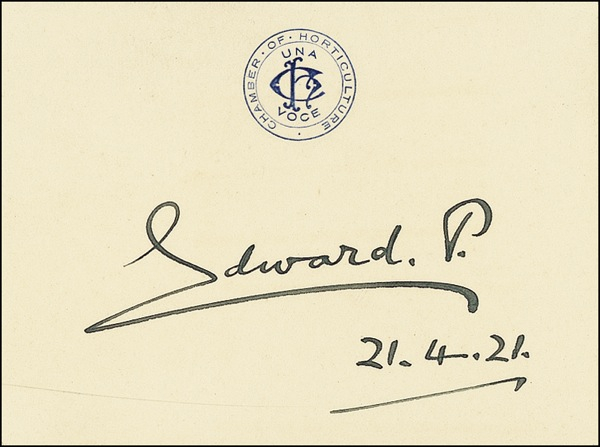 CHAMBER · OF · HORTICULTURE ·
UNA
CH
VOCE
Edward. P.
21.4.21.